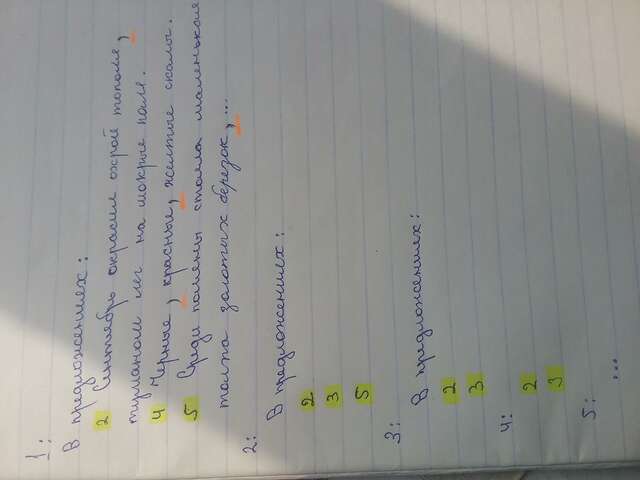 1:
В предложениях:
2 Сентябрь окрасил охрой тополя,
туманом лег на мокрые поля.
4 Черные, красные, желтые скалы.
5 Среди поляны стояла маленькая
толпа золотых березок, ...
2:
В предложениях:
2
3
5
3:
В предложениях:
2
3
4:
2
3
5: ...